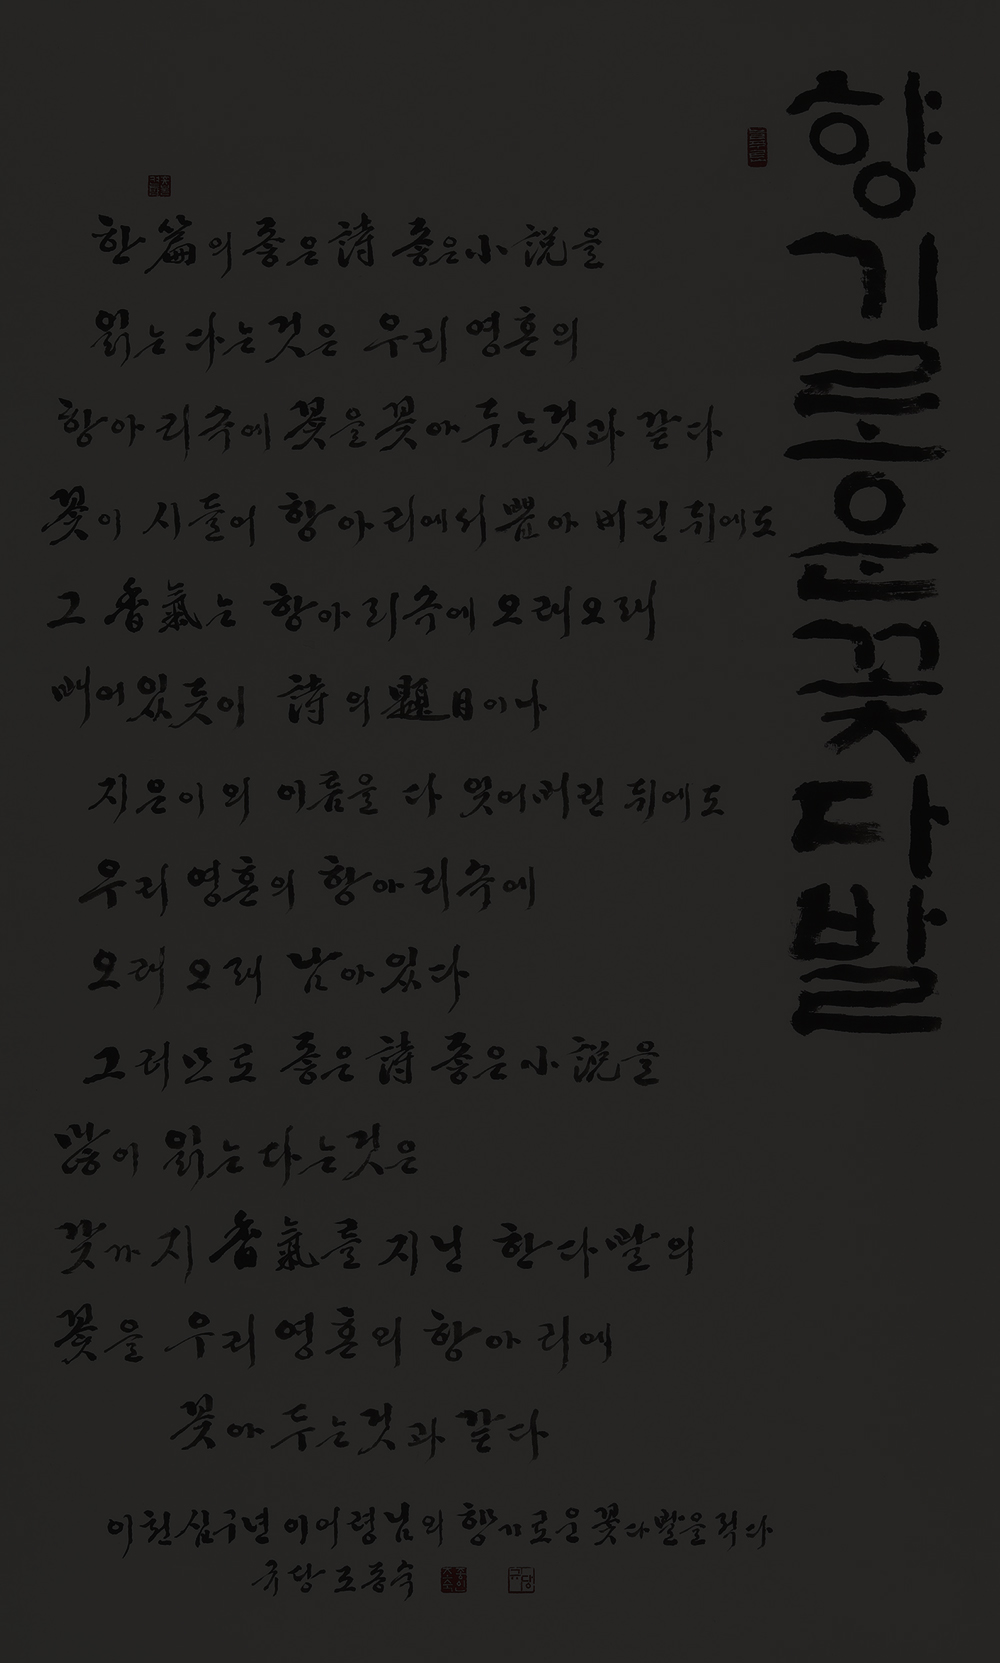 향기로운 꽃다발
한 篇의 좋은 詩 좋은 小說을
읽는다는 것은 우리 영혼의
항아리 속에 꽃을 꽂아 두는 것과 같다
꽃이 시들어 항아리에서 뽑아 버린 뒤에도
그 香氣는 항아리 속에 오래오래
배어있듯이 詩의 題目이나
지은이의 이름을 다 잊어버린 뒤에도
우리 영혼의 항아리 속에
오래 오래 남아있다
그러므로 좋은 詩 좋은 小說을
많이 읽는다는 것은
갖가지 香氣를 지닌 한 다발의
꽃을 우리 영혼의 항아리에
꽂아 두는 것과 같다
이천십구년 이어령님의 향기로운 꽃다발을 적다
규당 조동숙
규당